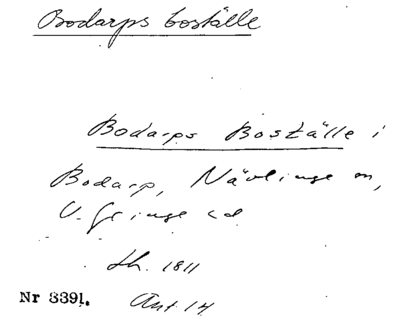 Bodarps boställe
Bodarps Boställe i
Bodarp, Nävlinge sn,
V. Göinge hd
Lh. 1811
Nr 3391. Ant. 14